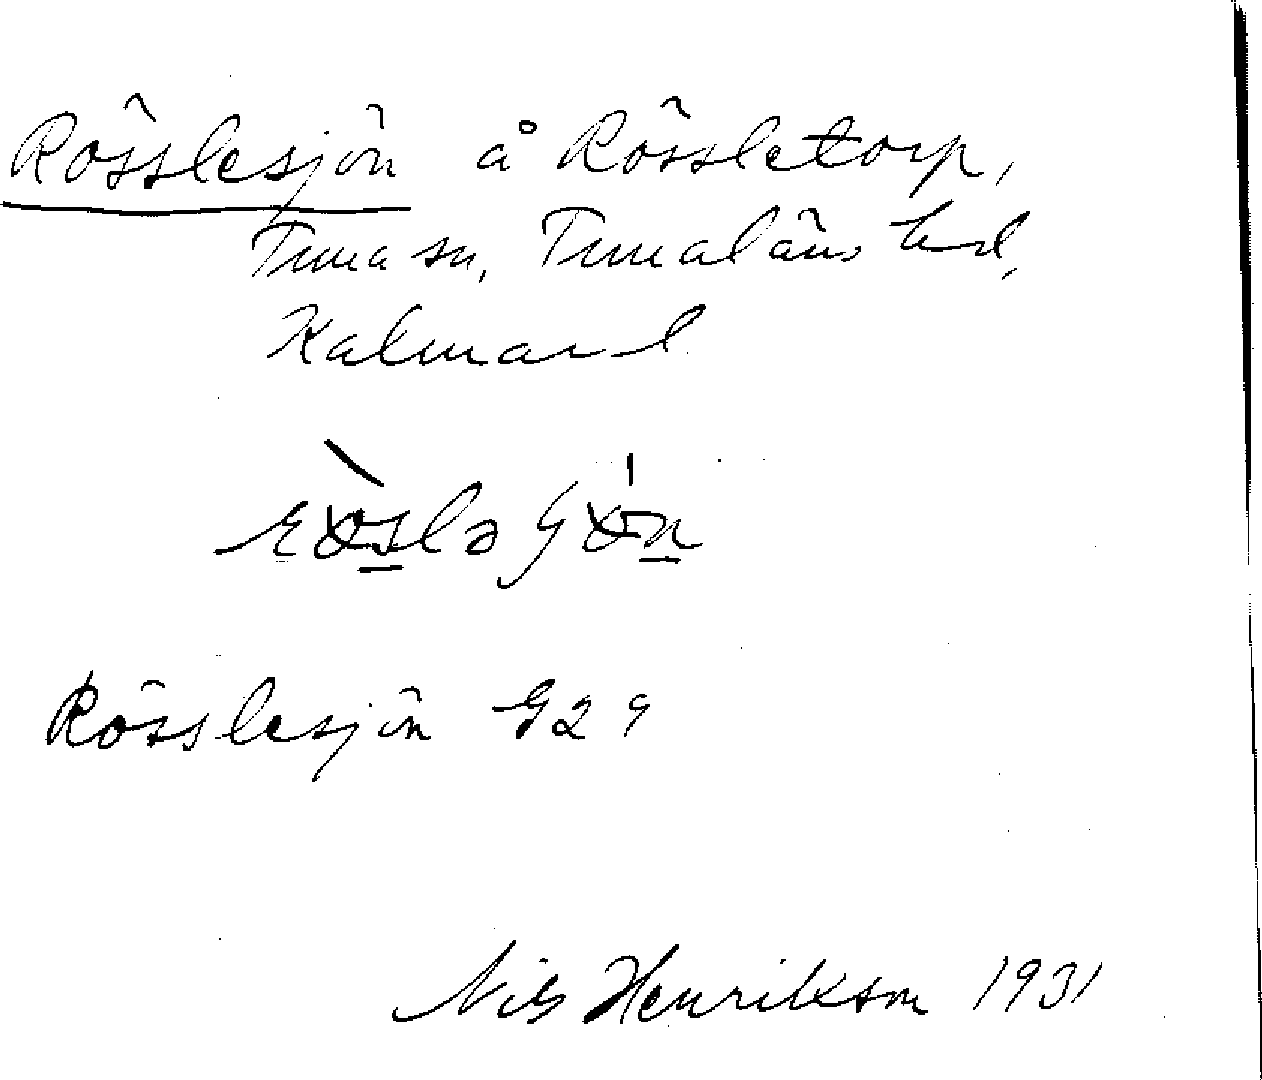 Rösslesjön å Rössletorp,
Tuna sn, Tunaläns hd,
Kalmar l
Rösslesjön G 29
Nils Henrikson 1931